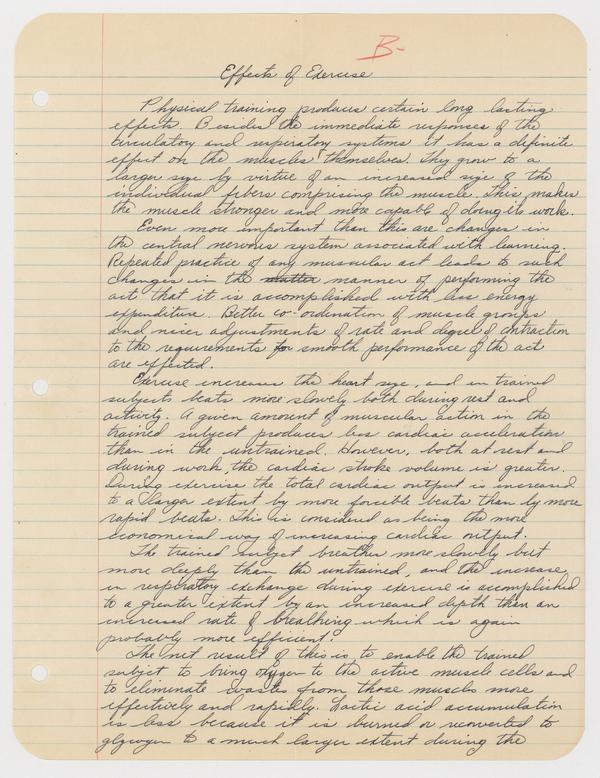 B-
Effects of Exercise
Physical training produces certain long lasting
effects. Besides the immediate responses of the
circulatory and respiratory systems it has a definite
effect on the muscles themselves. They grow to a
larger size by virtue of an increased size of the
individual fibers comprising the muscle. This makes
the muscle stronger and more capable of doing its work.
Even more important than this are changes in
the central nervous system associated with learning.
Repeated practice of any muscular act leads to such
changes in the matter manner of performing the
act that it is accomplished with less energy
expenditure. Better co-ordination of muscle groups
and nicer adjustments of rate and degree of contraction
to the requirements for smooth performance of the act
are effected.
Exercise increases the heart size, and in trained
subjects beats more slowly both during rest and
activity. A given amount of muscular action in the
trained subject produces less cardiac acceleration
than in the untrained. However, both at rest and
during work, the cardiac stroke volume is greater.
During exercise the total cardiac output is increased
to a larger extent by more forcible beats than by more
rapid beats. This is considered as being the more
economical way of increasing cardiac output.
The trained subject breathes more slowly but
more deeply than the untrained, and the increase
in respiratory exchange during exercise is accomplished
to a greater extent by an increased depth than an
increased rate of breathing which is again
probably more efficient.
The net result of this is to enable the trained
subject to bring oxygen to the active muscle cells and
to eliminate wastes from those muscles more
effectively and rapidly. Lactic acid accumulation
is less because it is burned or reconverted to
glycogen to a much larger extent during the